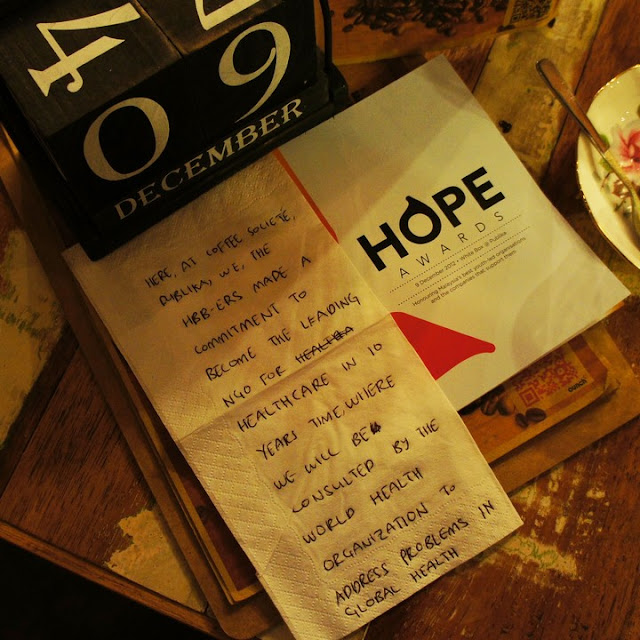 09
DECEMBER
HOPE
AWARDS
9 December 2012 • White Box @ Publika
Honouring Malaysia's best youth-led organisations
and the companies that support them
HERE, AT COFFEE SOCIETE,
PUBLIKA, WE, THE
HBB-ERS MADE A
COMMITMENT TO
BECOME THE LEADING
NGO FOR
HEALTHCARE IN 10
YEARS TIME, WHERE
WE WILL BE
CONSULTED BY THE
WORLD HEALTH
ORGANIZATION TO
ADDRESS PROBLEMS IN
GLOBAL HEALTH